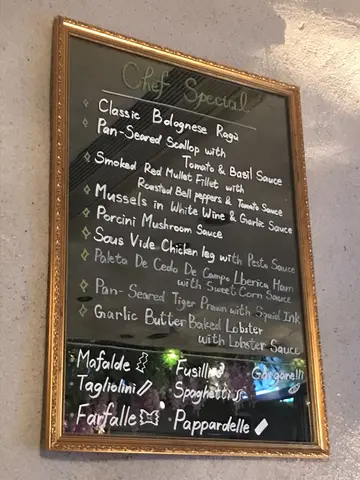 Chef Special
Classic Bolognese Ragù
Pan-Seared Scallop with
Tomato & Basil Sauce
Smoked Red Mullet Fillet with
Roasted Bell peppers & Tomato Sauce
Mussels in White Wine & Garlic Sauce
Porcini Mushroom Sauce
Sous Vide Chicken leg with Pesto Sauce
Paleta De Cedo De Campo Lberica Ham
with Sweet Corn Sauce
Pan-Seared Tiger Prawn with Squid Ink
Garlic Butter Baked Lobster
with Lobster Sauce
Mafalde Fusilli Garganelli
Tagliolini Spaghetti
Farfalle Pappardelle